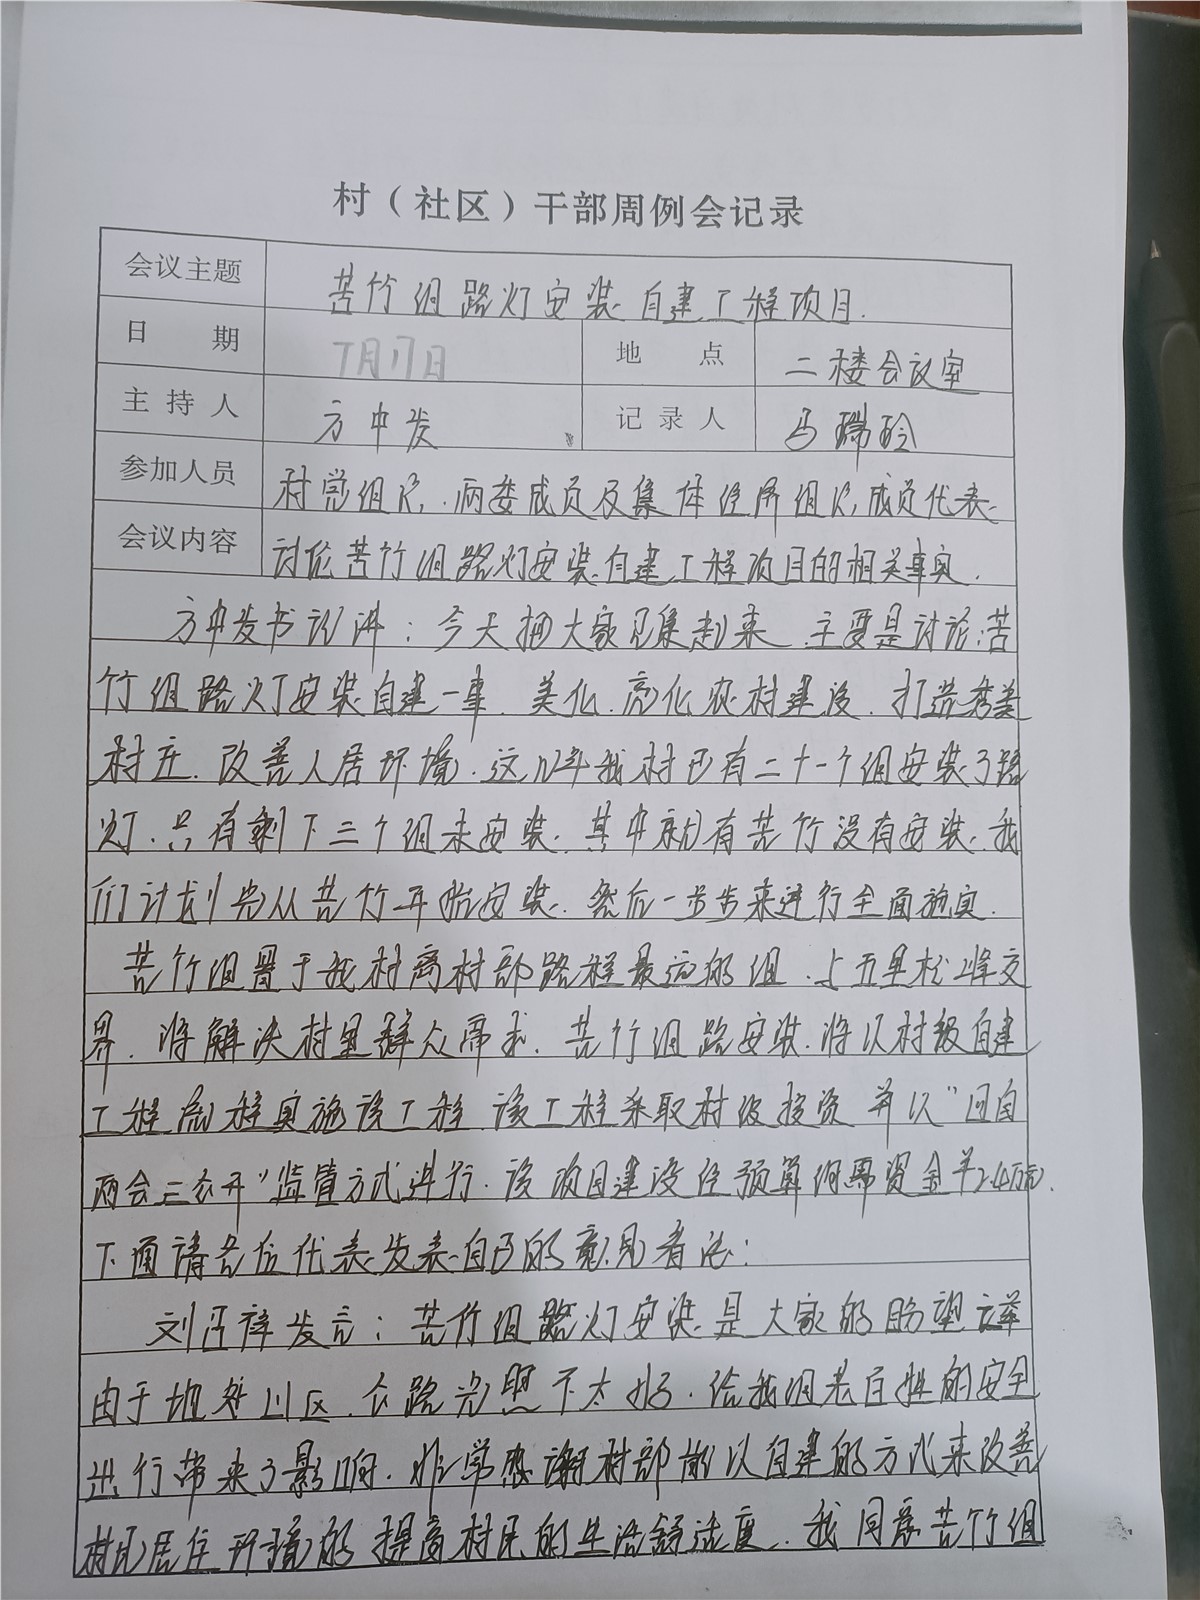 村（社区）干部周例会记录
会议主题 苦竹组路灯安装自建工程项目.
日 期 7月17日 地 点 二楼会议室
主 持 人 方中发 记 录 人 马瑞玲
参加人员 村党组织,两委成员及集体经济组织,成员代表
会议内容 讨论苦竹组路灯安装自建工程项目的相关事宜.
方中发书记讲：今天把大家召集起来 主要是讨论苦
竹组路灯安装自建一事. 美化.亮化农村建设. 打造秀美
村庄. 改善人居环境. 这几年我村已有二十一个组安装了路
灯.只有剩下三个组未安装. 其中就有苦竹没有安装.我
们计划先从苦竹开始安装. 然后一步步来进行全面施实.
苦竹组属于我村离村部路程最远的组.与五里松峰交
界.将解决村里群众需求. 苦竹组路安装.将以村级自建
工程流程实施该工程.该工程采取村级投资 并以"四自
两会三公开"监管方式进行.该项目建设经预算约需资金¥2.4万元.
下面请各位代表发表自己的意见看法：
刘 祥发言：苦竹组路灯安装是大家的盼望
由于地处山区.公路光照不太好.给我组老百姓的安全
进行带来了影响.非常感谢村部能以自建的方式来改善
村民居住环境的 提高村民的生活舒适度. 我同意苦竹组